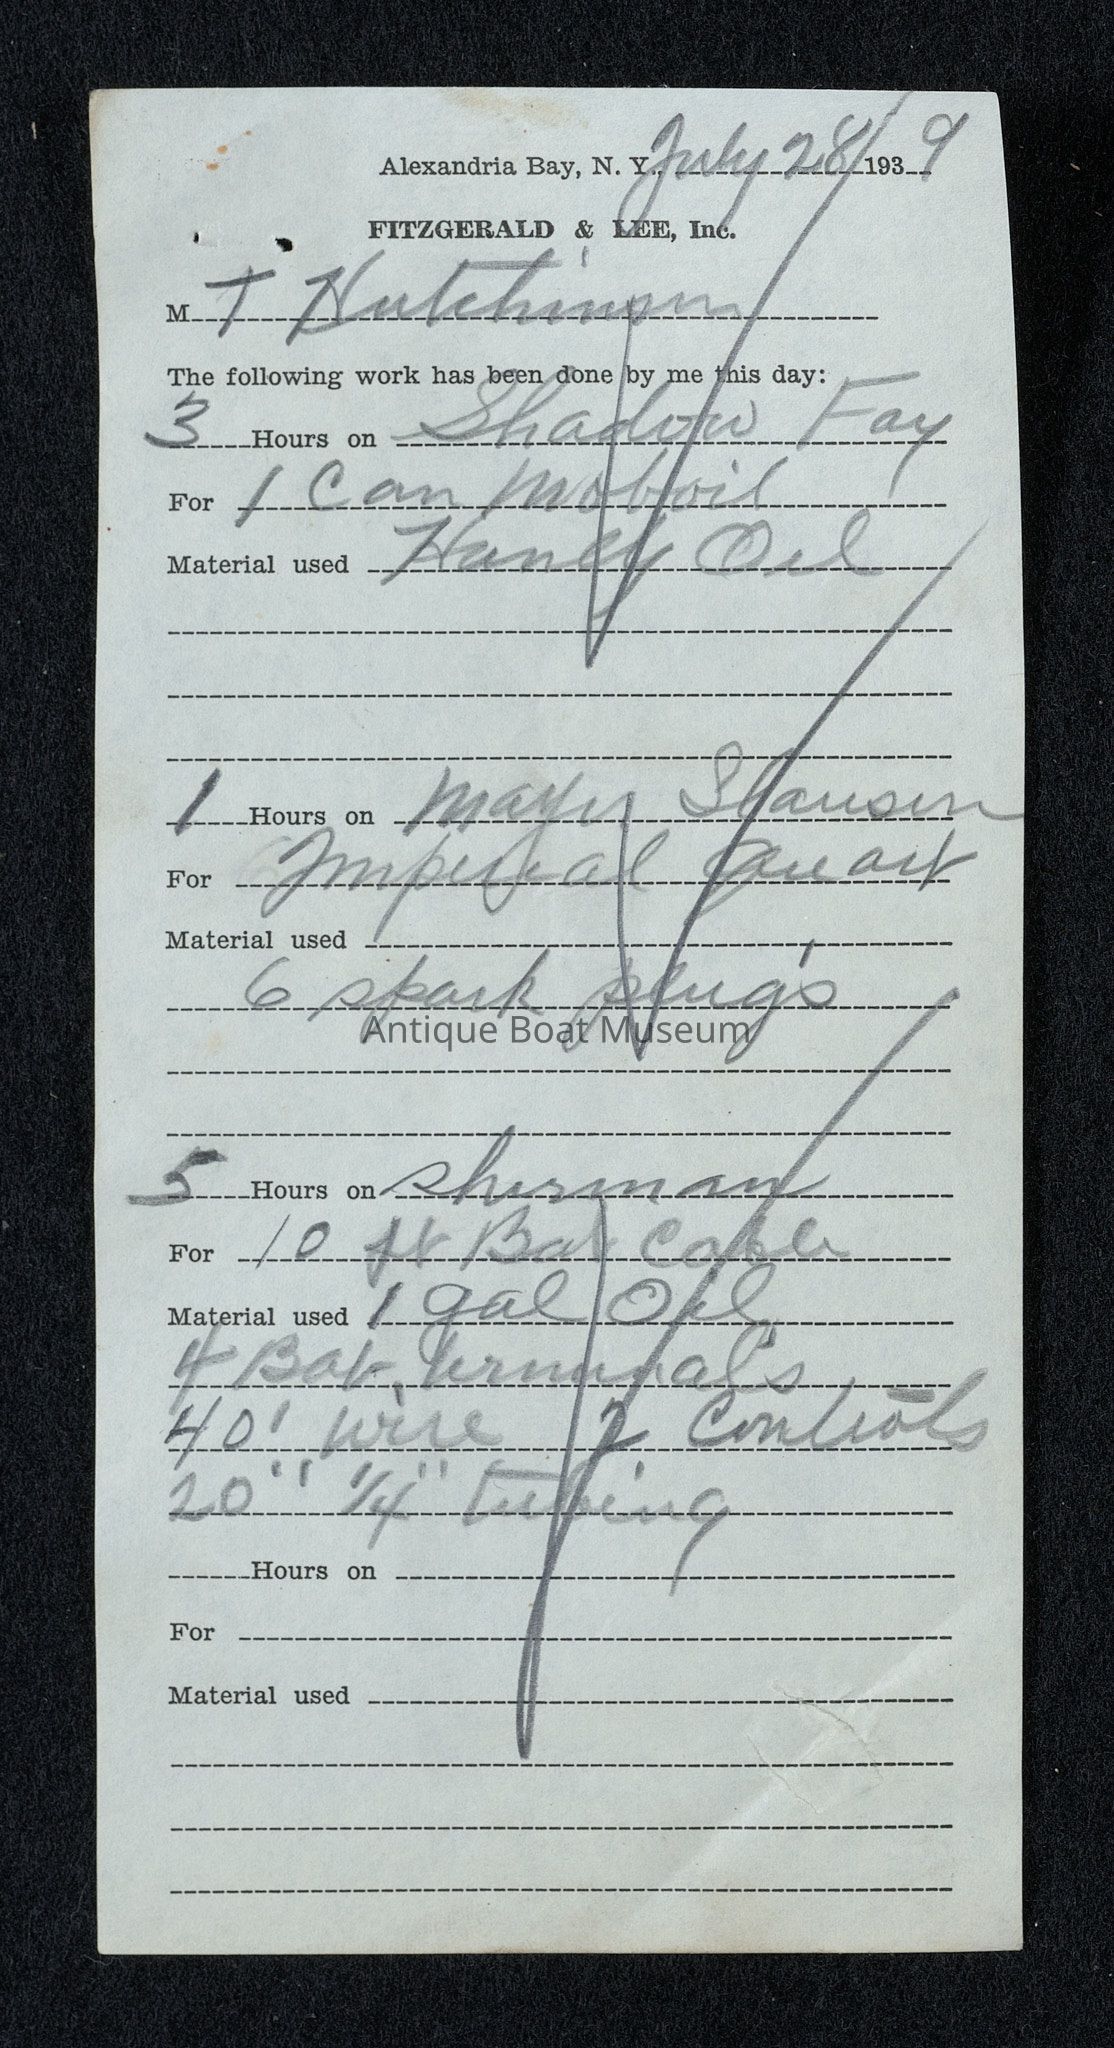 Alexandria Bay, N. Y. July 28 1939
FITZGERALD & LEE, Inc.
M T Hutchinson
The following work has been done by me this day:
3 Hours on Shadow Fay
For 1 Can Moboil
Material used Handy Oil
1 Hours on
For Imperial Quart
Material used
6 spark plugs
Antique Boat Museum
5 Hours on Sherman
For 10 ft Bat Cable
Material used 1 gal Oil
4 Bat. Terminals
40' wire 2 Controls
20'' 1/4" tubing
Hours on
For
Material used